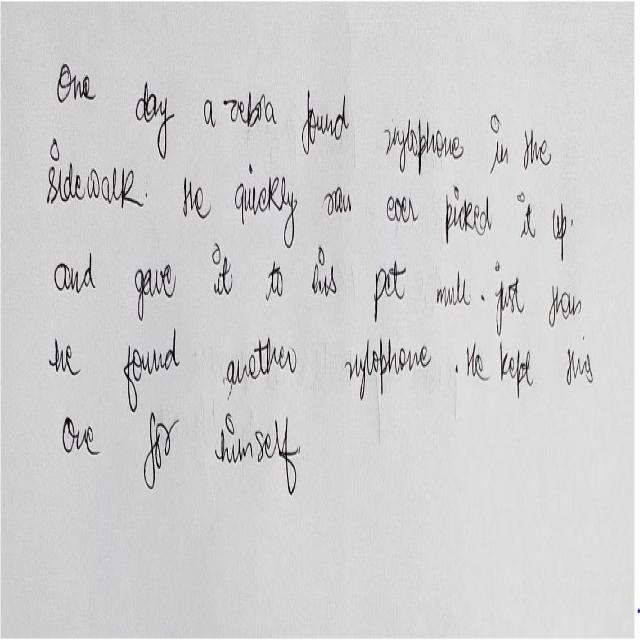 One day a zebra found xylophone in the
sidewalk. He quickly ran over picked it up.
and gave it to his pet mule. just then
he found another xylophone. He kept this
one for himself